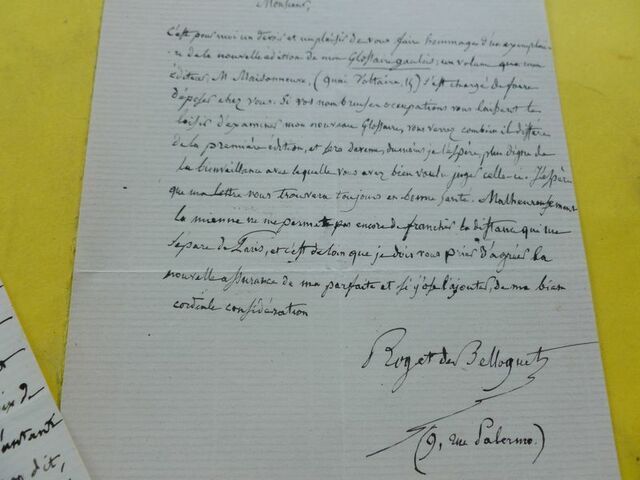 Monsieur,
C'est pour moi un devoir et un plaisir de vous faire hommage d'un exemplai-
re de la nouvelle édition de mon Glossaire gaulois; un volume que mon
éditeur, M Maisonneuve, (quai Voltaire, 15) s'est chargé de faire
déposer chez vous. Si vos nombreuses occupations vous laissent le
loisir d'examiner mon nouveau Glossaire, vous verrez combien il diffère
de la première édition, et sera devenu, du moins je l'espère, plus digne de
la bienveillance avec laquelle vous avez bien voulu juger celle-ci. J'espère
que ma lettre vous trouvera toujours en bonne santé. Malheureusement
la mienne ne me permet pas encore de franchir la distance qui me
sépare de Paris, et c'est de loin que je dois vous prier d'agréer la
nouvelle assurance de ma parfaite et si j'ose l'ajouter, de ma bien
cordiale considération
Roget de Belloguet
(9, rue Palermo.)
de
antante
dit,